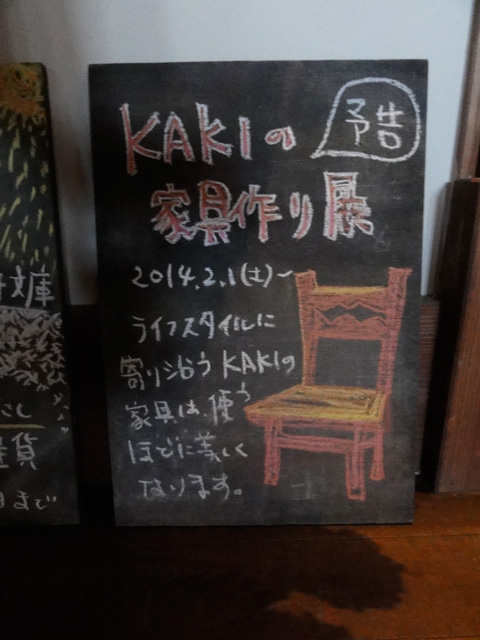 予告
KAKIの
家具作り展
2014.2.1(土)~
ライフスタイルに
寄り沿う KAKIの
家具は、使う
ほどに美しく
なります。
文庫
貨
まで